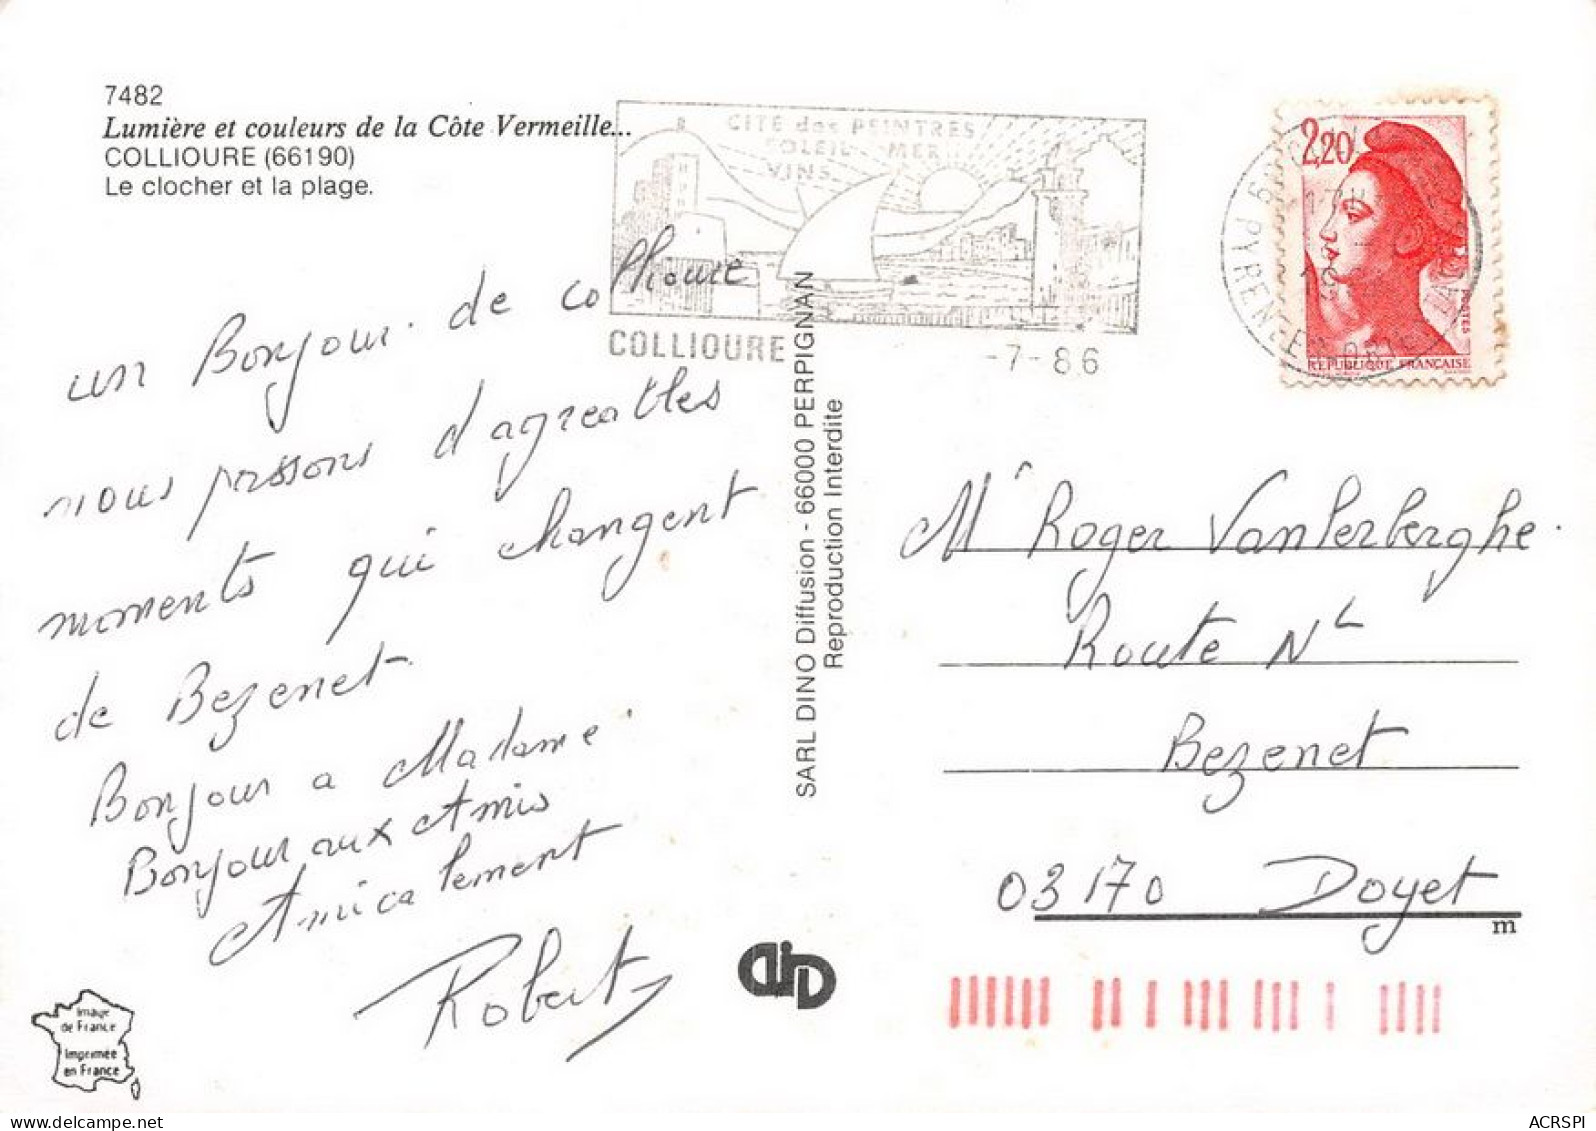 7482
Lumière et couleurs de la Côte Vermeille...
COLLIOURE (66190)
Le clocher et la plage.
CITE des PEINTRES
SOLEIL MER
VINS
COLLIOURE
-7-86
2,20
POSTES
REPUBLIQUE FRANÇAISE
un Bonjour de collioure
nous passons d'agreables
moments qui changent
de Bezenet.
Bonjour a Madame
Bonjour aux Amis
Amicalement
Robert
SARL DINO Diffusion - 66000 PERPIGNAN
Reproduction Interdite
Mr Roger Vanterberghe.
Route NL
Bezenet
03170 Doyet
m
Image
de France
Imprimée
en France
ACRSPI